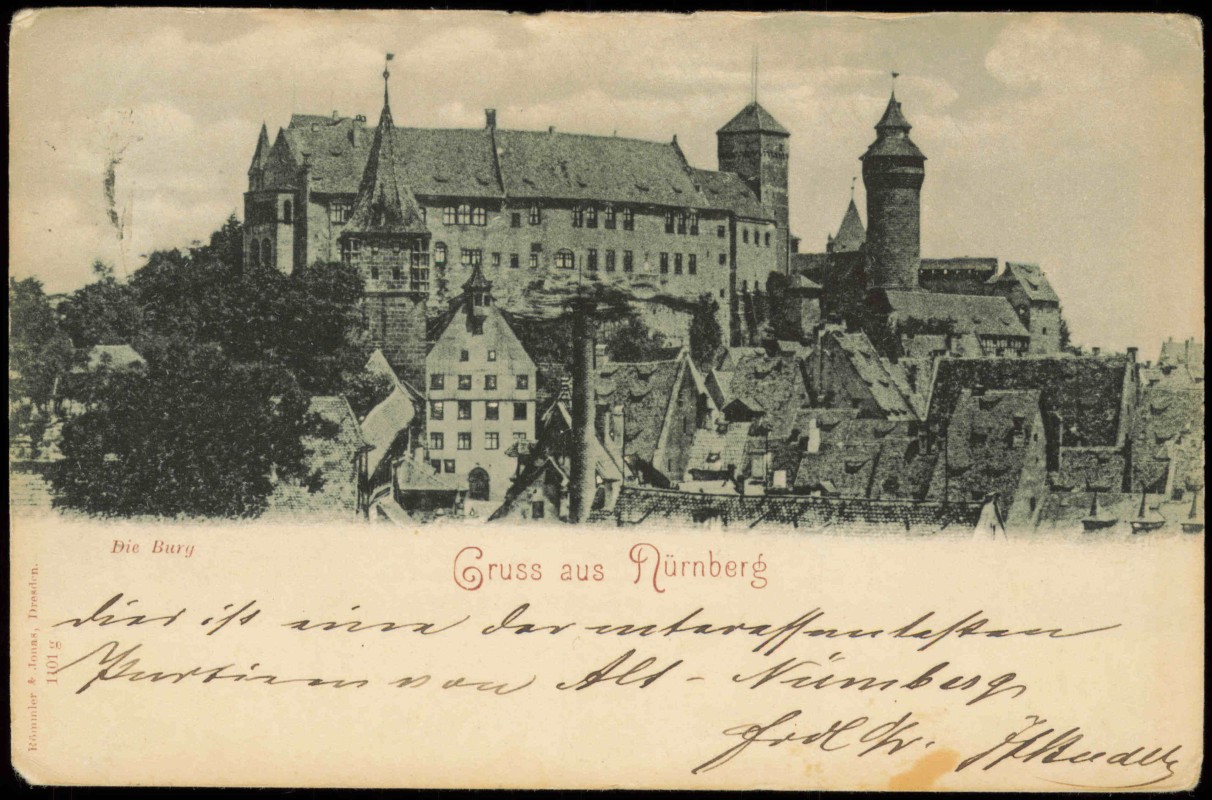 Die Burg
Gruss aus Nürnberg
dies ist eine der interessantesten
Partien von Alt-Nürnberg
frdl Gr.
Römmler & Jonas, Dresden.
1101g